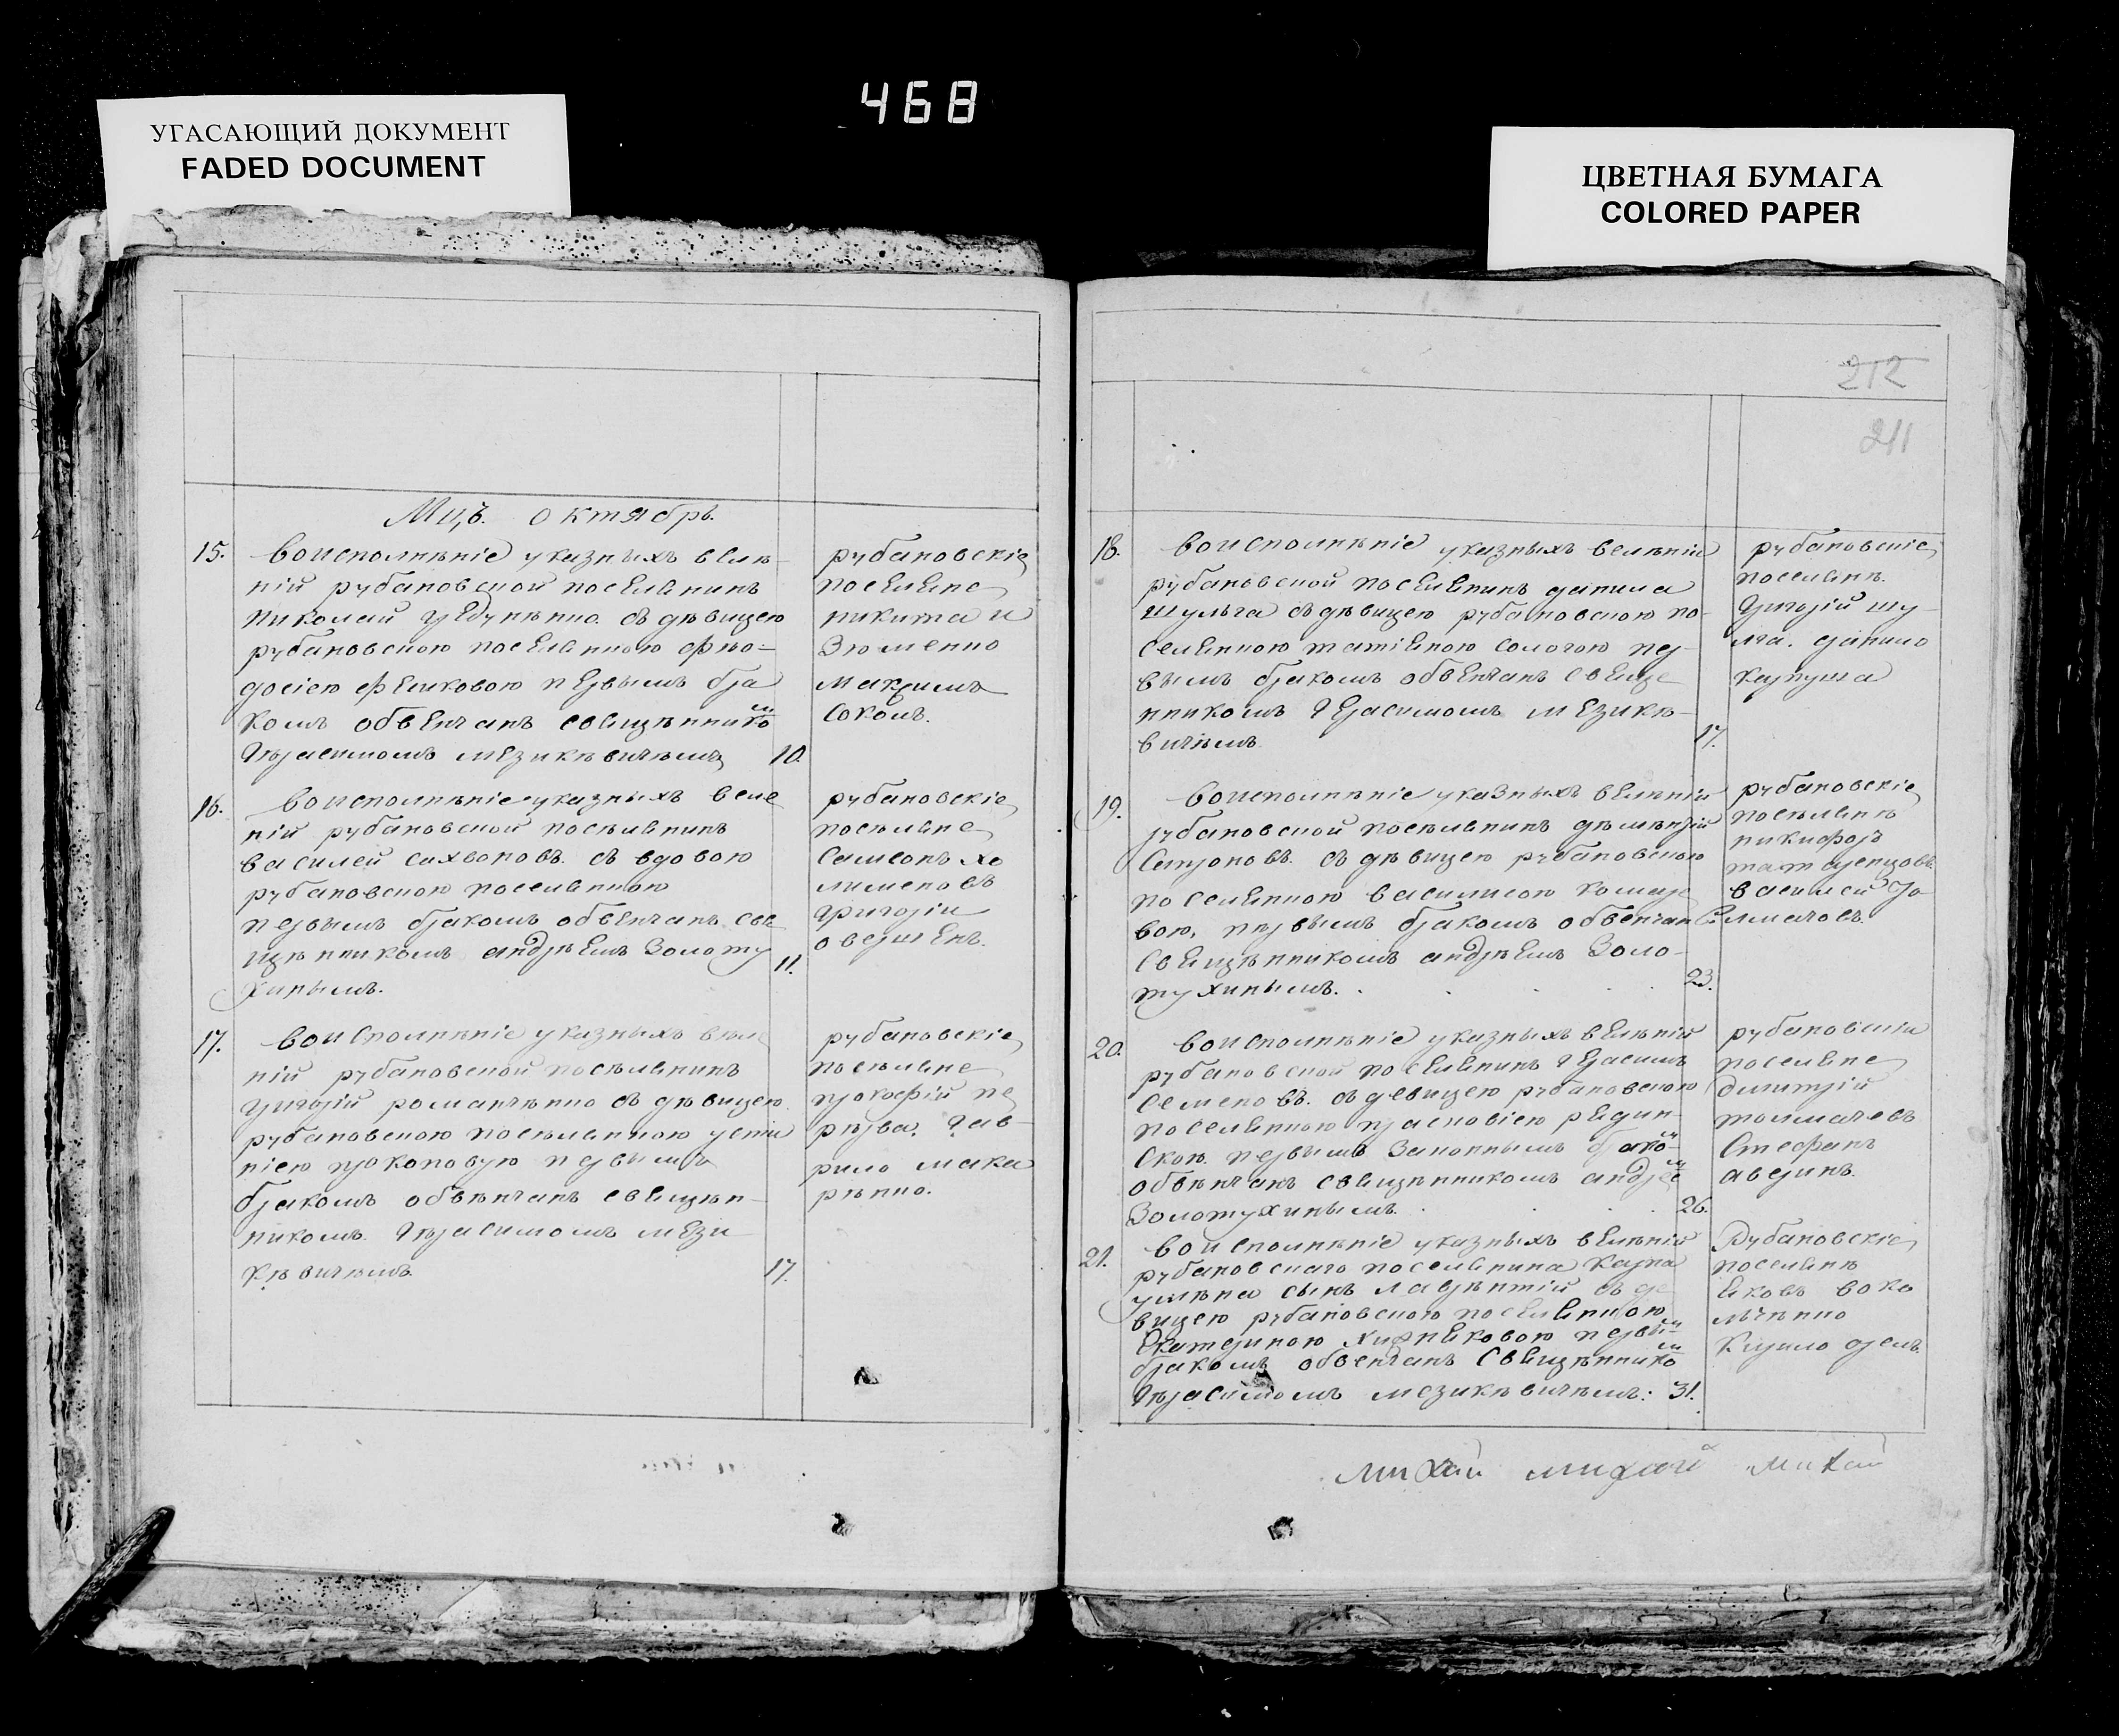 468
УГАСАЮЩИЙ ДОКУМЕНТ
FADED DOCUMENT
ЦВЕТНАЯ БУМАГА
COLORED PAPER
212
211
Мцъ. октябрь.
15. Воисполнѣніе указныхъ велѣ-
ній рубановской поселянинъ
николай съ дѣвицею
рубановскою поселянкою фео-
досіею первымъ бра
комъ обвенчанъ священнико м
Герасимомъ мезикѣвичемъ 10.
рубановскіе
поселяне
никита и
Зюменко
Максимъ
Соколъ.
16. Воисполнѣніе указныхъ веле
ній рубановской посѣлянинъ
василей съ вдовою
рубановскою поселянкою
первымъ бракомъ обвенчанъ свя
щѣнникомъ андрѣемъ Золоту
хинымъ. 11.
рубановскіе
посѣляне
Симеонъ хо
лименовъ
Григорій
17. Воисполнѣніе указныхъ вѣле
ній рубановской посѣлянинъ
Григорій романчѣнко съ дѣвицею
рубановскою посѣлянкою усти
ніею прокоповую первымъ
бракомъ обвѣнчанъ свящѣн-
никомъ Гѣрасимомъ мези
кѣвичѣмъ 17.
рубановскіе
посѣляне
прокофій пе
рѣрва. Гав-
рило мака
рѣнко.
18. Воисполнѣніе указныхъ велѣній
рубановской поселянинъ данила
шульга съ дѣвицею рубановскою по-
селянкою татіяною сологою пер-
вымъ бракомъ обвенчанъ свяще
нникомъ Герасимомъ мезикѣ-
вичѣмъ 17.
рубановскіе
поселянѣ.
Григорій шу-
лга. данило
19. Воисполнѣніе указныхъ велѣній
рубановской посѣлянинъ дѣмѣнтій
съ дѣвицею рубановскою
поселянкою василисою комаре
вою, первымъ бракомъ обвенчан
Священникомъ андрѣемъ Золо-
тухинымъ. 23.
рубановскіе
посѣлянѣ
никифоръ
василей То
лмачовъ
20. Воисполнѣніе указныхъ велѣній
рубановской поселянинъ Герасимъ
Семеновъ. съ девицею рубановскою
поселянкою
первымъ законнымъ брако м
обвѣнчанъ свящѣнникомъ андрѣе м
Золотухинымъ. 26.
рубановскіи
поселяне
димитрій
толмачевъ
Стефанъ
аверинъ.
21. Воисполнѣніе указныхъ велѣній
рубановскаго поселянина карпа
сынъ лаврѣнтій съ де
вицею рубановскою поселянкою
Екатериною первы м
бракомъ обвенчанъ свящѣннико м
Гѣрасимомъ мезикѣвичѣмъ: 31.
Рубановскіе
поселянѣ
яковъ воко
лѣчѣнко
Кирило
михай михай михай